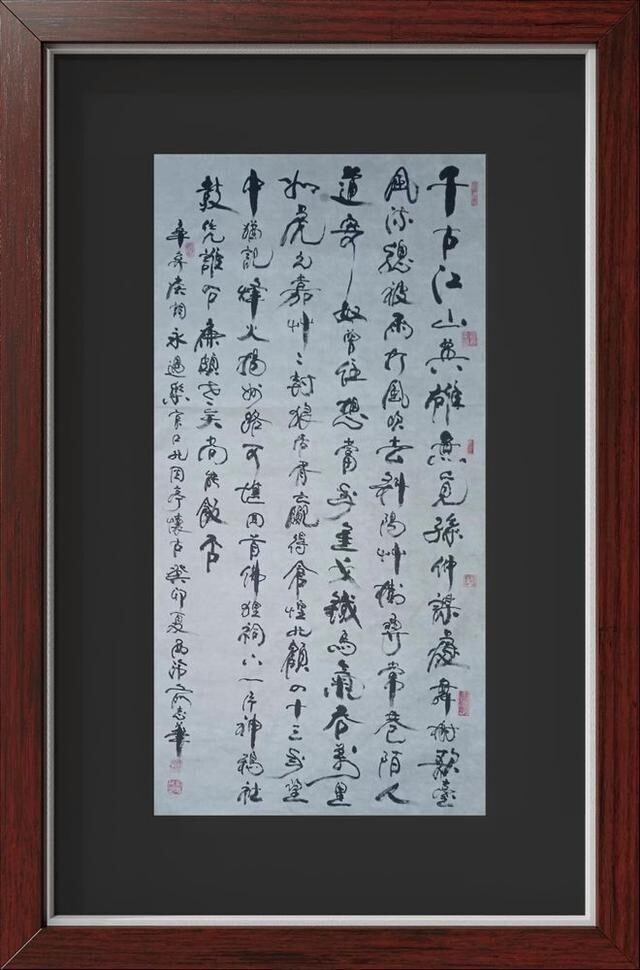 千古江山英雄無覓孫仲謀處舞榭歌臺
風流總被雨打風吹去斜陽艸樹尋常巷陌人
道寄奴曾住想當年金戈鐵馬氣吞萬里
如虎元嘉艸艸封狼居胥贏得倉惶北顧四十三年望
中猶記烽火揚州路可堪回首佛狸祠下一片神鴉社
鼓憑誰問廉頗老矣尚能飯否
辛弃疾詞永遇樂京口北固亭懷古癸卯夏俞志華